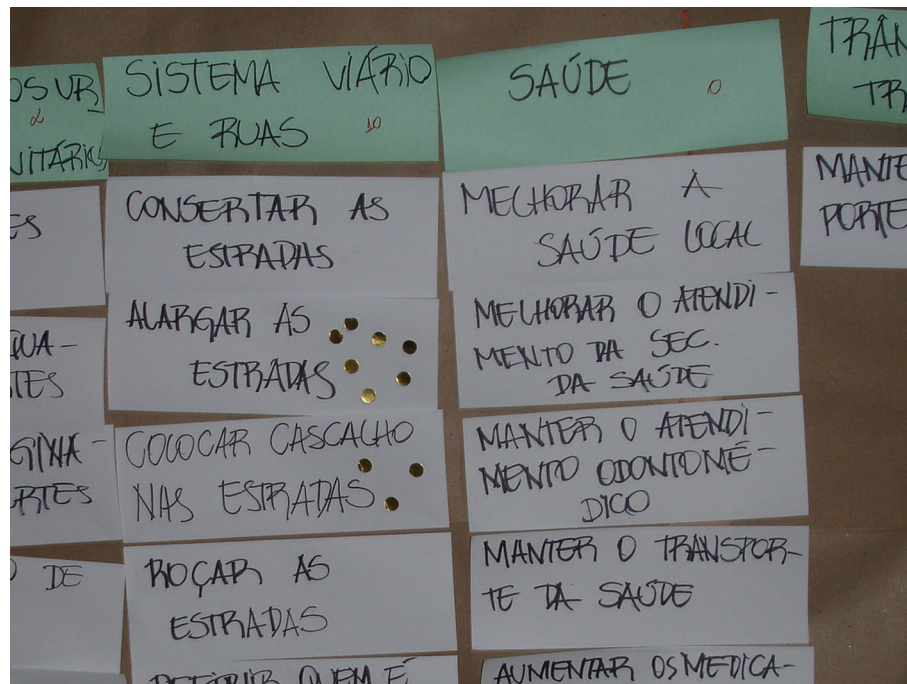 OSUR
2
NITÁRIOS
ES
TES
GINA-
RTES
DE
SISTEMA VIÁRIO
E RUAS 10
CONSERTAR AS
ESTRADAS
ALARGAR AS
ESTRADAS
COLOCAR CASCALHO
NAS ESTRADAS
ROÇAR AS
ESTRADAS
DEFINIR QUEM É
SAÚDE 0
MELHORAR A
SAÚDE LOCAL
MELHORAR O ATENDI-
MENTO DA SEC.
DA SAÚDE
MANTER O ATENDI-
MENTO ODONTOMÉ-
DICO
MANTER O TRANSPOR-
TE DA SAÚDE
AUMENTAR OS MEDICA-
TRÂN
TR
MANTE
PORTE